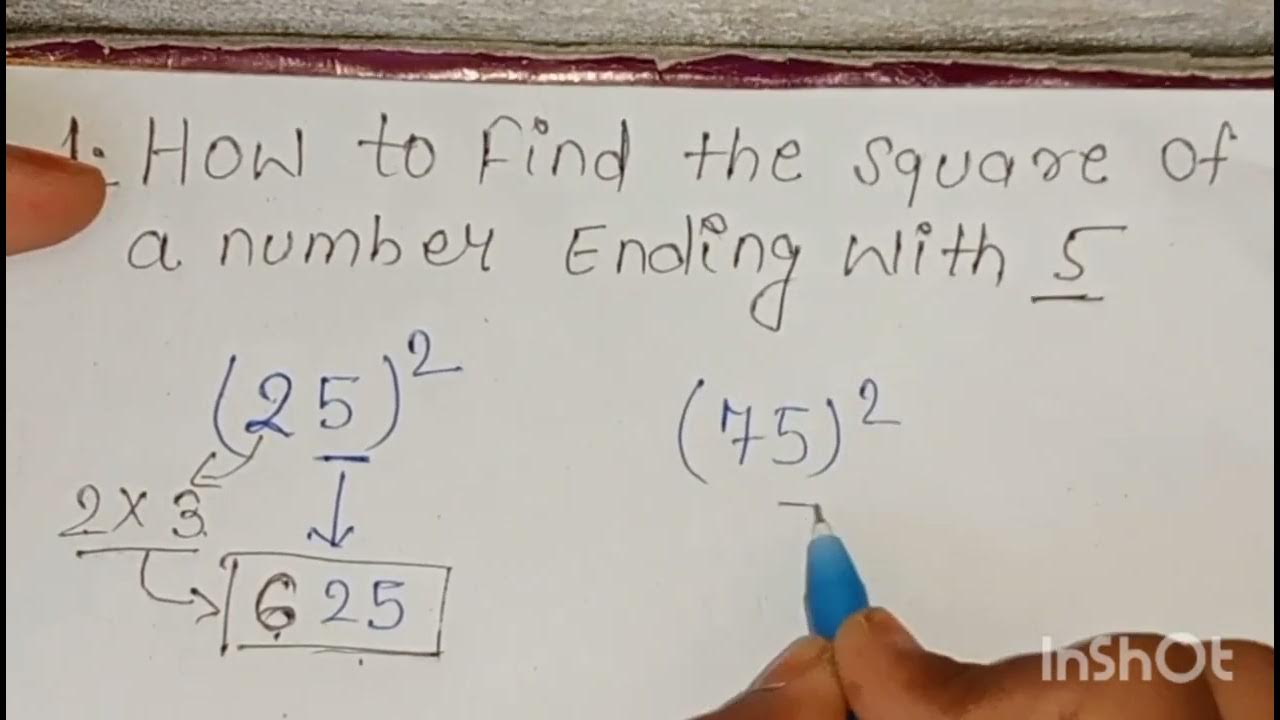 1. How to Find the square of
a number Ending with 5
(25)²
(75)²
2 × 3
625
InShOt